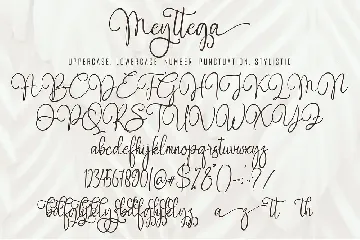 Meyttega
UPPERCASE, LOWERCASE, NUMBER, PUNCTUATION, STYLISTIC
ABCDEFGHIJKLMN
OPQRSTUVWXYZ
abcdefghijklmnopqrstuvwxyz
1234567890
a z tt th